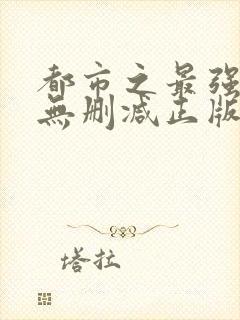 都市之最强
無删减正版
塔拉